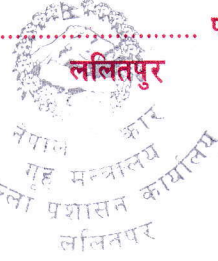 ललितपुर
नेपाल
कार
गृह मन्त्रालय
ल्ला प्रशासन कार्यालय
ललितपुर